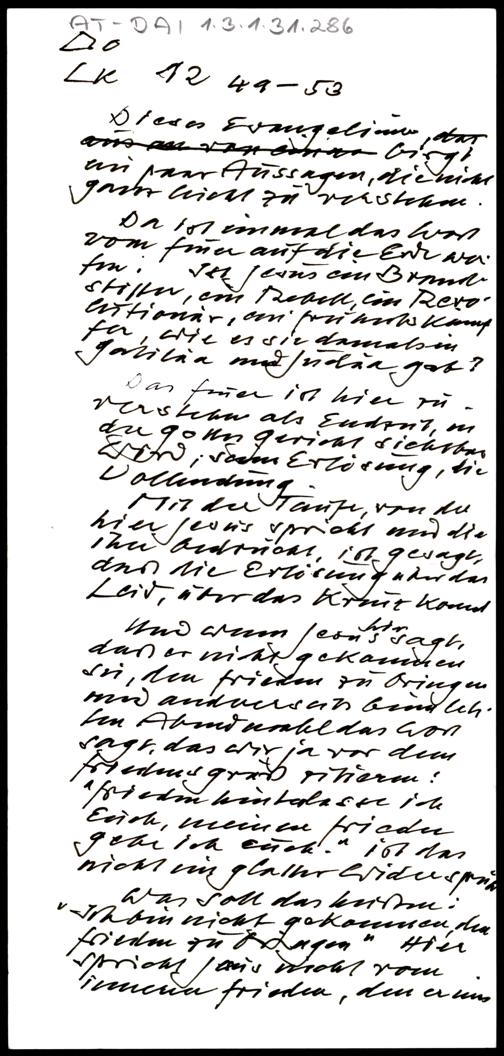 AT-DAI 1.3.1.31.286
Do
Lk 12 49-53
Dieses Evangelium, das
birgt
ein paar Aussagen, die nicht
ganz leicht zu verstehen.
Da ist einmal das Wort
vom Feuer auf die Erde wer-
fen: Ist Jesus ein Brand-
stifter, ein Rebell, ein Revo-
lutionär, ein Kämp
fer, wie es sie damals in
Galiläa und Judäa gab?
Das Feuer ist hier zu
verstehen als Endzeit, in
der Gottes Gericht sichtbar
wird, seine Erlösung, die
Vollendung.
Mit der Taufe, von der
hier Jesus spricht und die
ihn bedrückt, ist gesagt,
daß die Erlösung über das
Leid, über das Kreuz kommt
Und wenn Jesus hier sagt,
daß er nicht gekommen
sei, den Frieden zu bringen
und andererseits beim letz-
ten Abendmahl das Wort
sagt, das wir ja vor dem
Friedensgruß zitieren:
"Frieden hinterlasse ich
Euch, meinen Frieden
gebe ich euch." ist das
nicht ein glatter Widerspruch
Was soll das heißen:
"Ich bin nicht gekommen, den
Frieden zu bringen" Hier
spricht Jesus nicht vom
inneren Frieden, den er uns